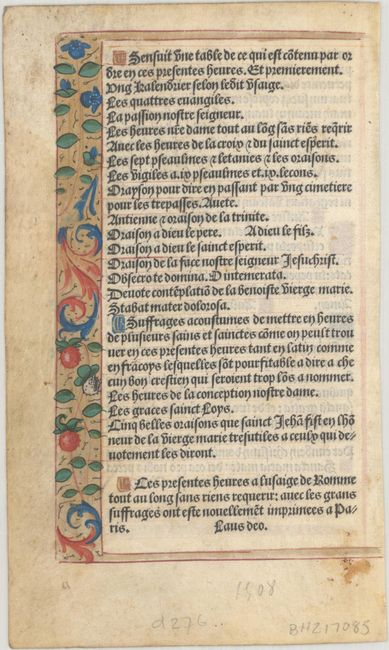 Sensuit vne table de ce qui est cõtenu par or
dre en ces presentes heures. Et premierement.
Vng kalendrier selon ledit vsaige.
Les quattres euangiles.
La passion nostre seigneur.
Les heures nr̃e dame tout au lõg sãs riẽs reqrir
Auec les heures de la croix ⁊ du sainct esperit.
Les sept pseaulmes ⁊ letanies ⁊ les oraisons.
Les vigiles a.ix pseaulmes et.ix.lecons.
Orayson pour dire en passant par vng cimetiere
pour les trepasses. Auete.
Antienne ⁊ oraison de la trinite.
Oraison a dieu le pere. A dieu le filz.
Oraison a dieu le sainct esperit.
Oraison de la face nostre seigneur Jesuchrist.
Obsecro te domina. O intemerata.
Deuote contẽplatiõ de la benoiste vierge marie.
Stabat mater dolorosa.
Suffrages acoustumes de mettre en heures
de plusieurs sains et sainctes cõme on peult trou
uer en ces presentes heures tant en latin comme
en frãcoys lesquelles sõt pourfitable a dire a che
cun bon crestien qui seroient trop lõs a nommer.
Les heures de la conception nostre dame.
Les graces sainct Loys.
Cinq belles oraisons que sainct Jehã fist en lhõ
neur de la vierge marie tresutiles a ceulx qui de-
uotement les diront.
Ces presentes heures a lusaige de Romme
tout au long sans riens requerir: auec les grans
suffrages ont este nouellemẽt imprimees a Pa-
ris. Laus deo.
a
1508
d276..
BH217085